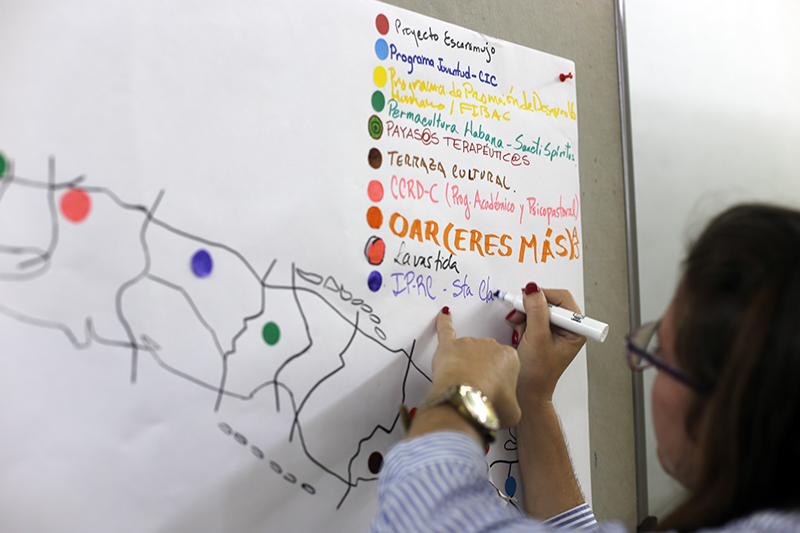 Proyecto Escaramujo
Programa Joventud-CIC
Programa de Promoción de Desarrollo
Humano / FIBAC
Permacultura Habana - Sancti Spíritus
PAYAS@S TERAPÉUTIC@S
TERRAZA CULTURAL.
CCRD-C (Prog. Académico y Psicopastoral)
OAR (ERES MÁS)
Lavastida
IP-RC - Sta Cla